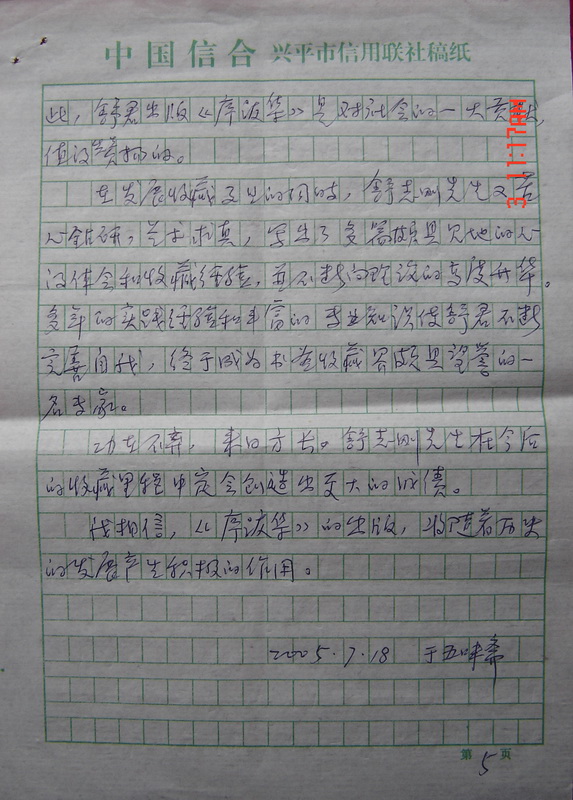 中国信合 兴平市信用联社稿纸
此，舒君出版《序波华》是对社会的一大贡献，
值得赞扬的。
在发展收藏事业的同时，舒志刚先生又苦
心钻研，艺术求真，写出了多篇颇具见地的心
得体会和收藏经验，并不断向理论的高度升华。
多年的实践经验和丰富的专业知识使舒君不断
完善自我，终于成为书画收藏界颇具望誉的一
名专家。
功在不弃，来日方长。舒志刚先生在今后
的收藏里程中定会创造出更大的成绩。
我相信，《序波华》的出版，将随着历史
的发展产生积极的作用。
2005.7.18 于五味斋
第5页
3 11:17AM